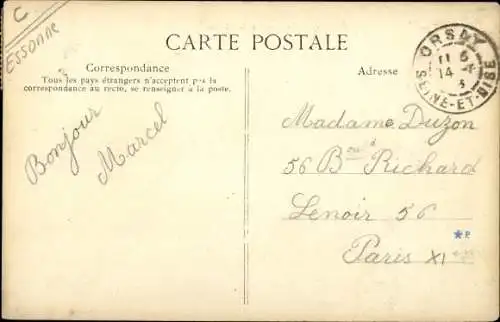 C
ESSONNE
CARTE POSTALE
Correspondance
Tous les pays étrangers n'acceptent pas la
correspondance au recto, se renseigner à la poste.
Adresse
ORSAY
SEINE-ET-OISE
Bonjour
Marcel
Madame Duzon
56 Bard Richard
Lenoir 56
Paris XI